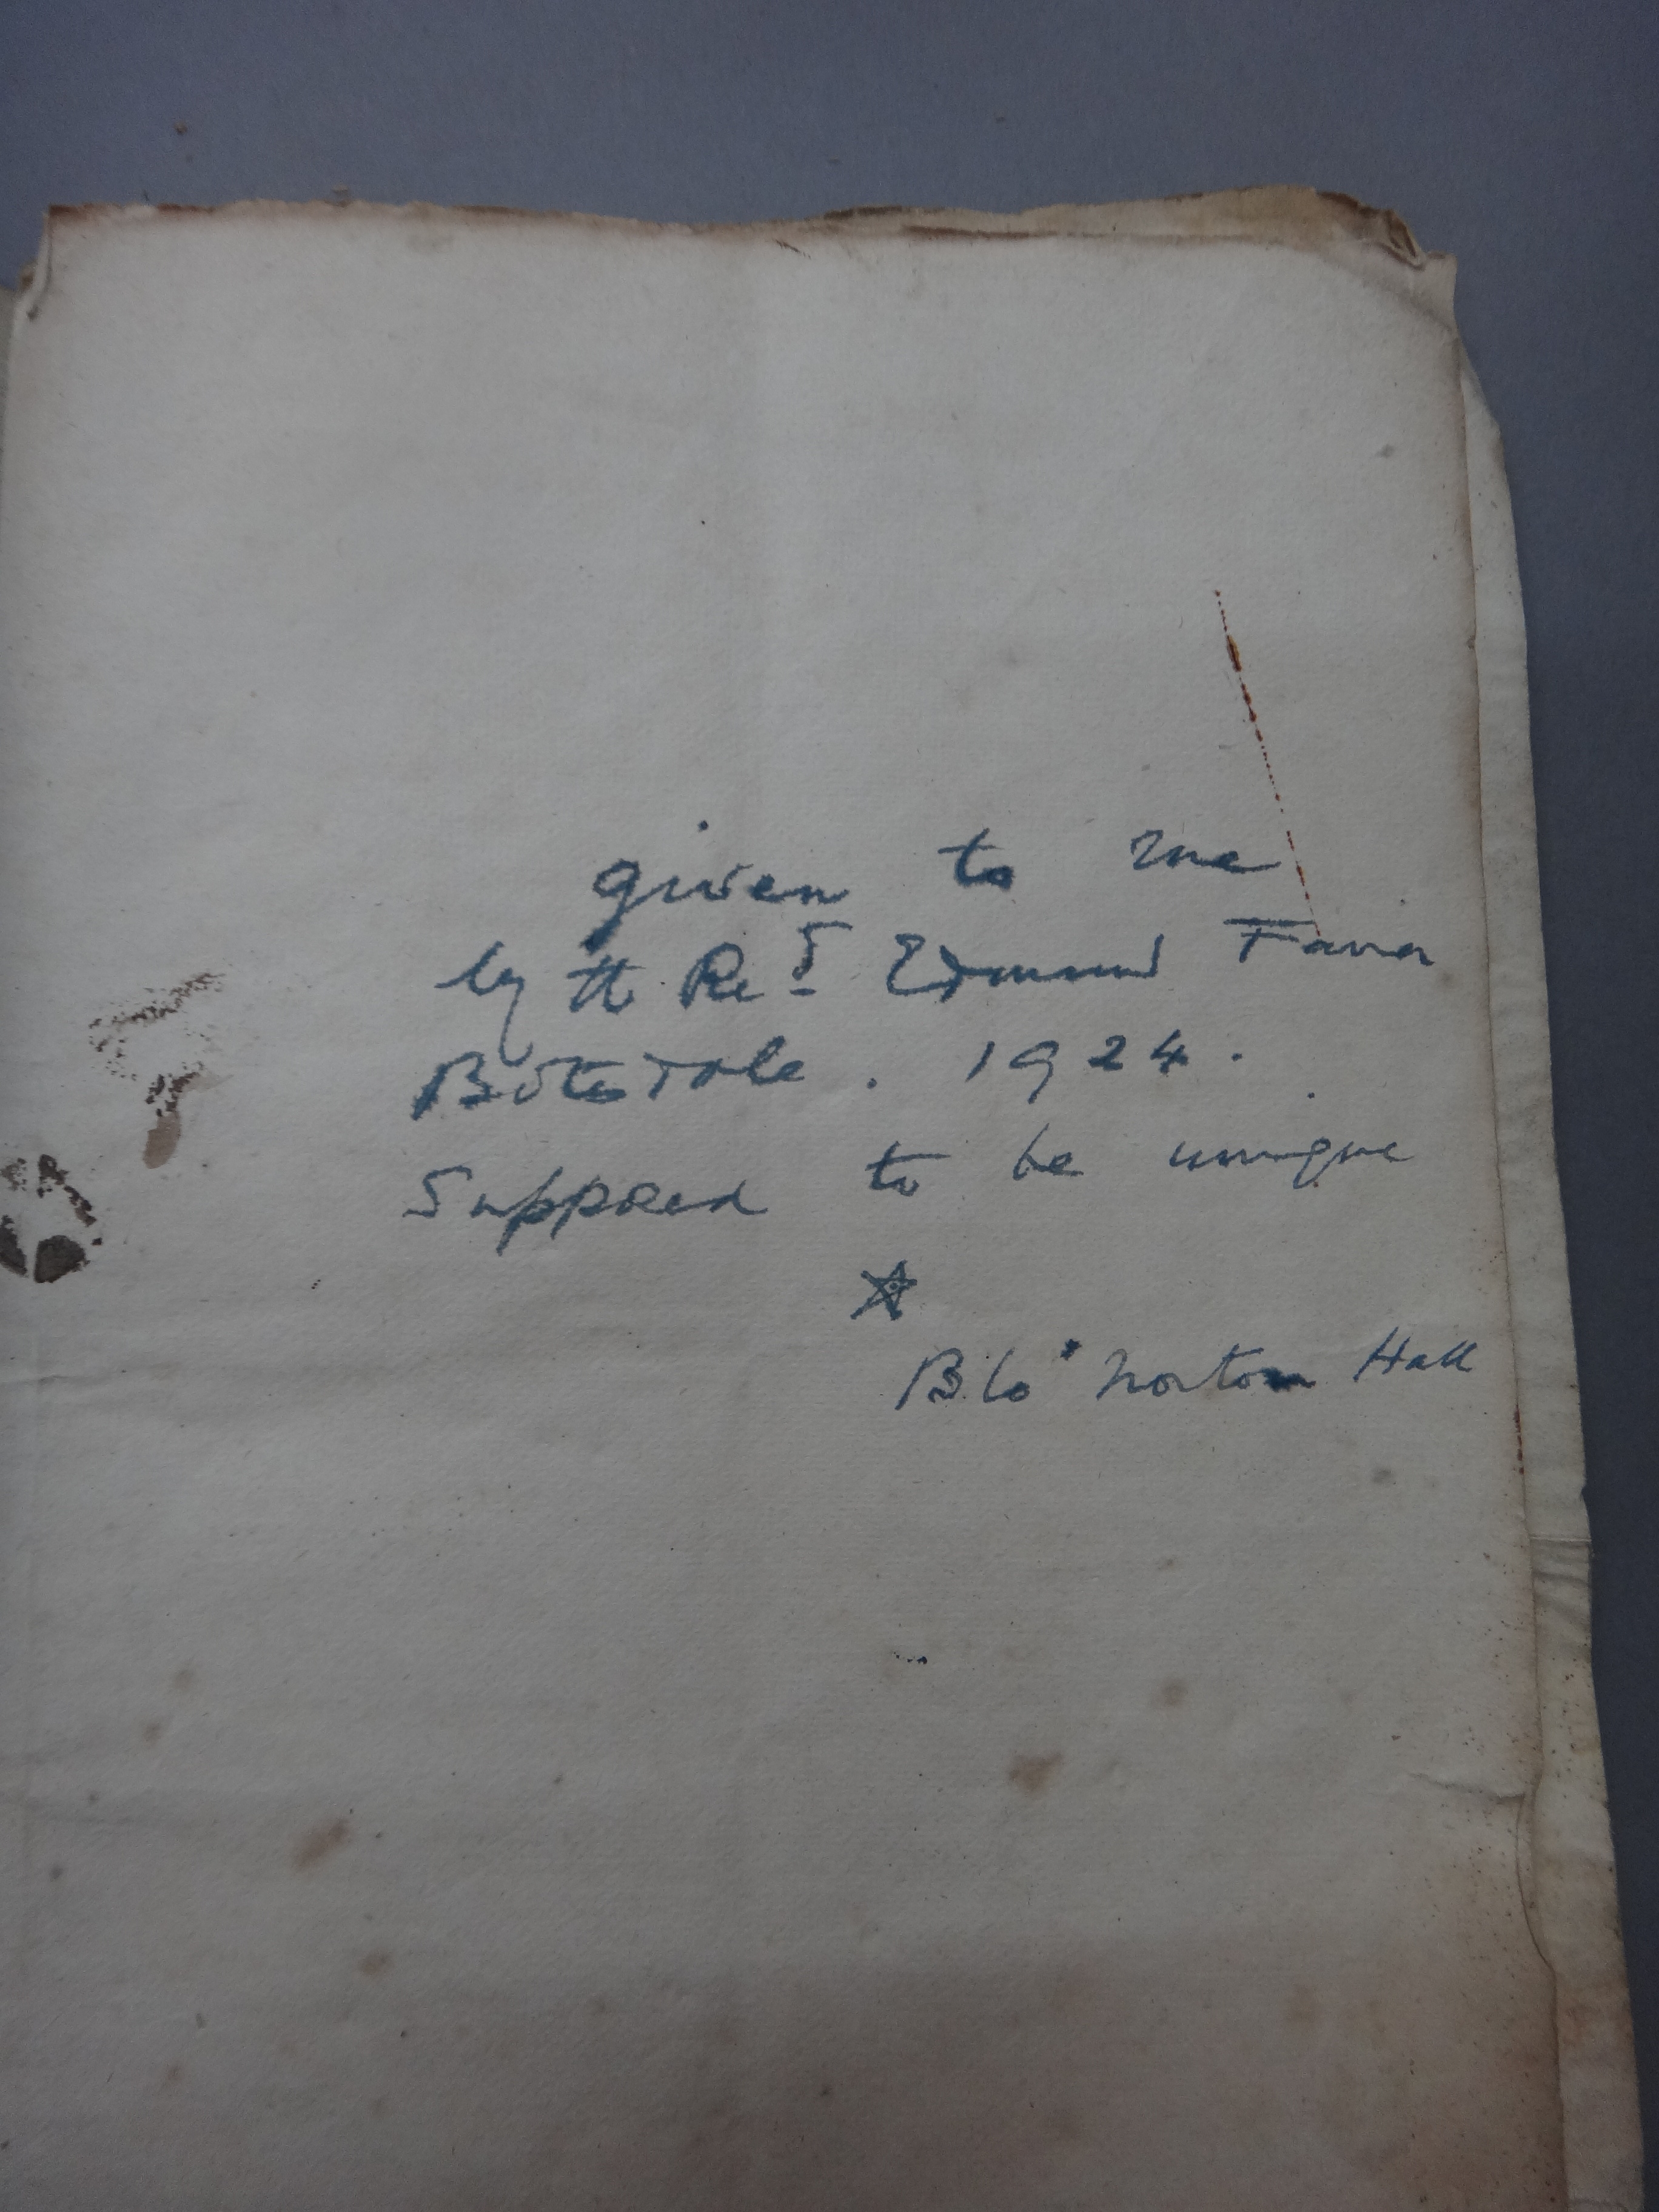 given to me
by the Revd Edmund Farrer
Botesdale . 1924 .
Supposed to be unique
Blo' Norton Hall